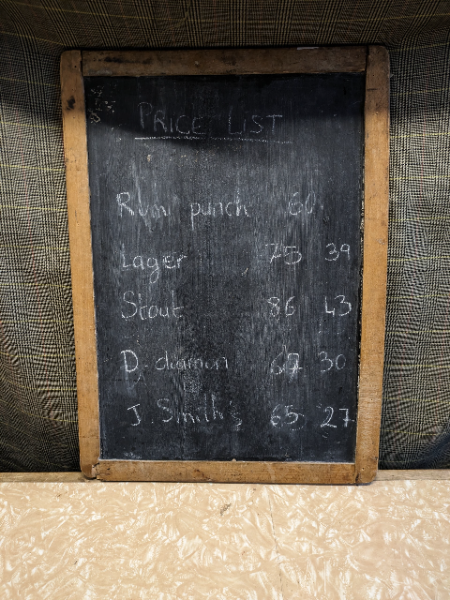 PRICE LIST
Rum punch 60
Lager 75 39
Stout 86 43
D. diamon 67 30
J. Smith's 65 27